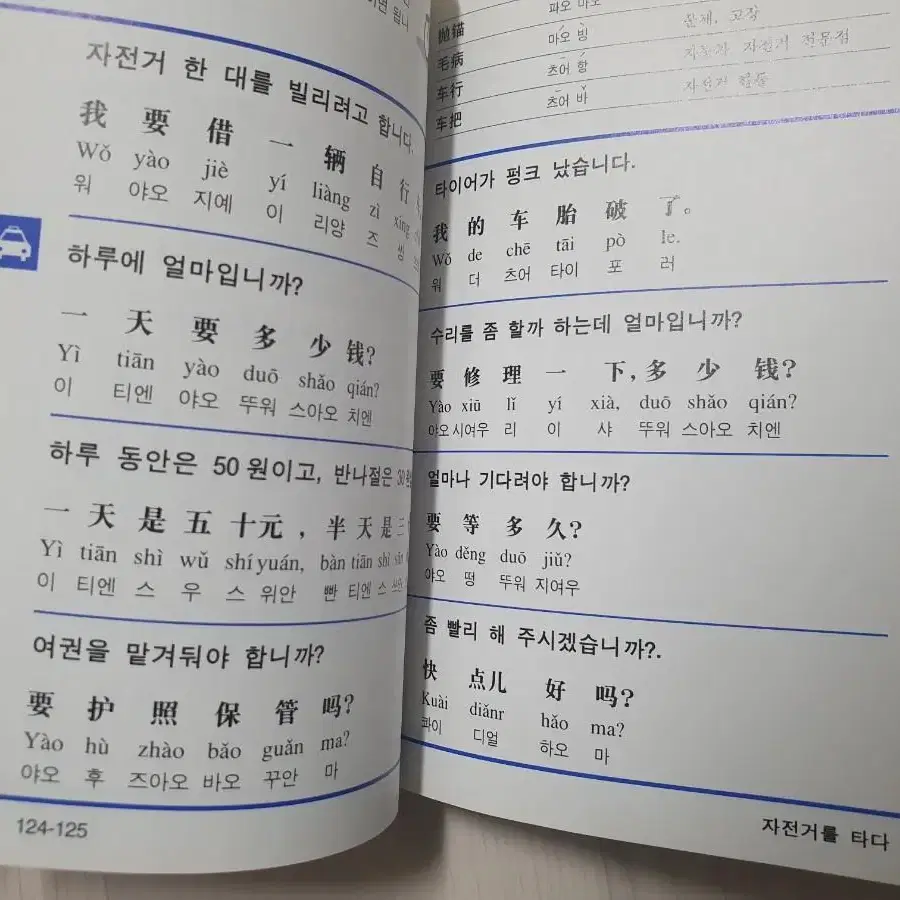 이면 됩니
자전거 한 대를 빌리려고 합니다.
我 要 借 一 辆 自 行
Wǒ yào jiè yí liàng zì xíng
워 야오 지예 이 리양 즈 씽
하루에 얼마입니까?
一 天 要 多 少 钱?
Yì tiān yào duō shǎo qián?
이 티엔 야오 뚜워 스아오 치엔
하루 동안은 50원이고, 반나절은 30
一 天 是 五 十元, 半 天 是 三
Yì tiān shì wǔ shí yuán, bàn tiān shì sān
이 티엔 스 우 스 위안 빤 티엔 스
여권을 맡겨둬야 합니까?
要 护 照 保 管 吗?
Yào hù zhào bǎo guǎn ma?
야오 후 즈아오 바오 꾸안 마
124-125
抛锚 파오 마오
毛病 마오 빙 문제, 고장
车行 츠어 항 자동차 자전거 전문점
车把 츠어 바 자전거 핸들
타이어가 펑크 났습니다.
我 的 车 胎 破 了。
Wǒ de chē tāi pò le.
워 더 츠어 타이 포 러
수리를 좀 할까 하는데 얼마입니까?
要 修 理 一 下, 多 少 钱?
Yào xiū lǐ yí xià, duō shǎo qián?
야오 시여우 리 이 샤 뚜워 스아오 치엔
얼마나 기다려야 합니까?
要 等 多 久?
Yào děng duō jiǔ?
야오 떵 뚜워 지여우
좀 빨리 해 주시겠습니까?.
快 点儿 好 吗?
Kuài diǎnr hǎo ma?
콰이 디얼 하오 마
자전거를 타다